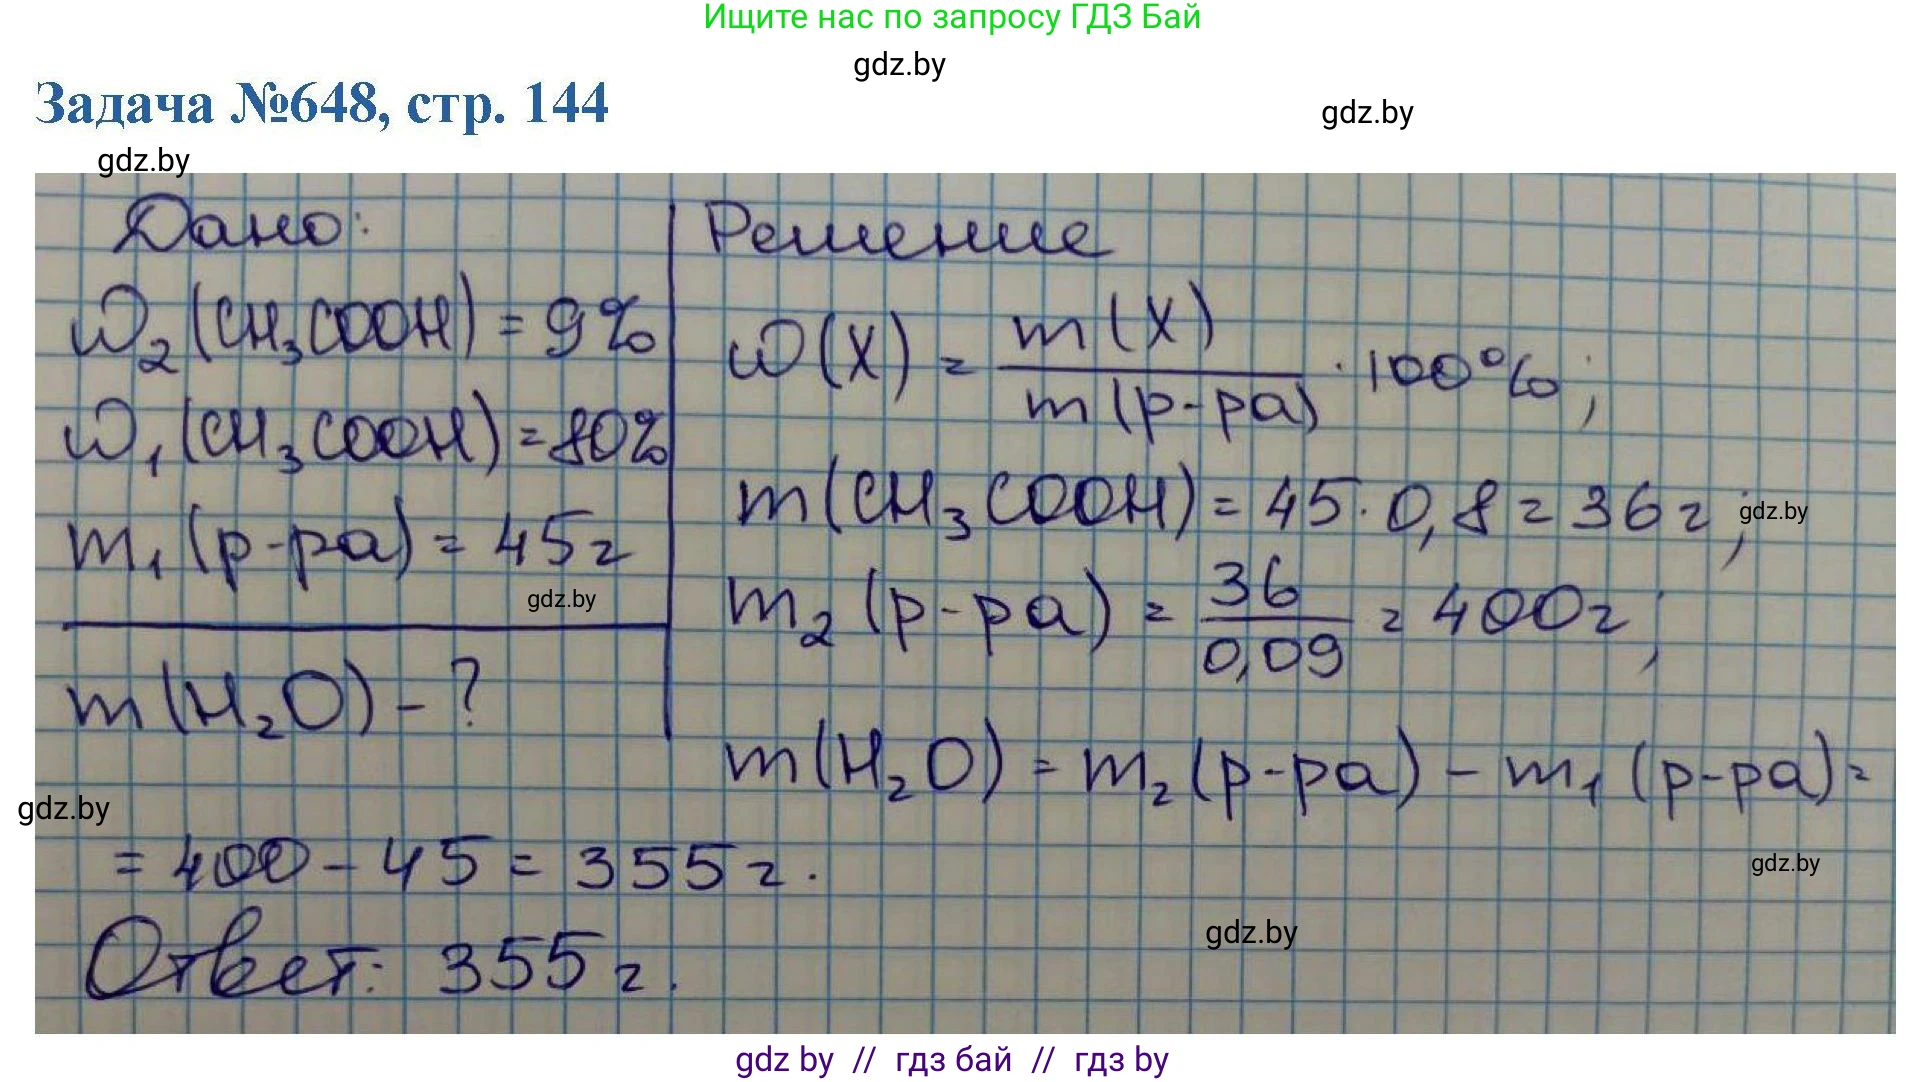 Ищите нас по запросу ГДЗ Бай
gdz.by
Задача №648, стр. 144
gdz.by
gdz.by
Дано:
ω₂(CH₃COOH) = 9%
ω₁(CH₃COOH) = 80%
m₁(р-ра) = 45г
gdz.by
m(H₂O) - ?
Решение
ω(X) = m(X) / m(р-ра) · 100%;
m(CH₃COOH) = 45 · 0,8 = 36г;
gdz.by
m₂(р-ра) = 36 / 0,09 = 400г;
m(H₂O) = m₂(р-ра) - m₁(р-ра) =
gdz.by
= 400 - 45 = 355г.
gdz.by
gdz.by
Ответ: 355г.
gdz by // гдз бай // гдз by